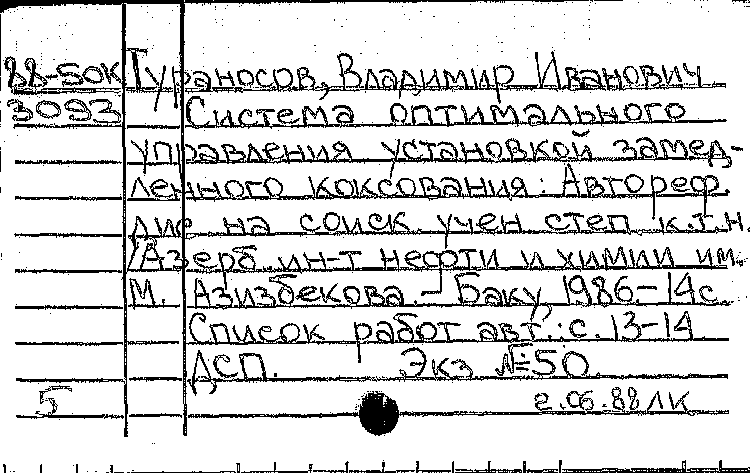 88-50К Тураносов, Владимир Иванович
3093 Система оптимального
управления установкой замед-
ленного коксования: Автореф.
дис на соиск учен степ к.т.н.
/Азерб ин-т нефти и химии им.
М. Азизбекова. - Баку, 1986. - 14 с.
Список работ авт.: с. 13-14
ДСП. Экз №50.
5 2.06.88 ЛК